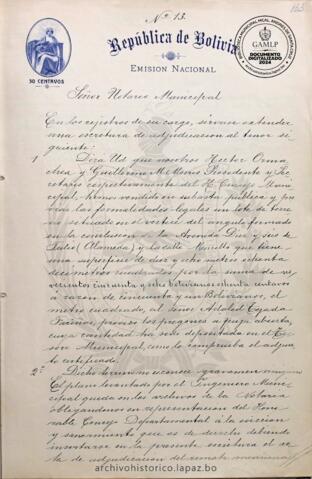 Nº 13.
163
República de Bolivia
EMISION NACIONAL
30 CENTAVOS
GAMLP
DOCUMENTO
DIGITALIZADO
2024
Señor Notario Municipal
En los registros de su cargo, sirvase extender
una escritura de adjudicacion al tenor si
guiente:
1 Dirá Ud que nosotros Hector Orma
chea y Guillermo Presidente y Se
cretario respectivamente del H. Concejo Muni
cipal, hemos vendido en subasta publica y pre
vias las formalidades legales un lote de terre
no situado en el vertice del angulo formado
en la confluencia de la Avenida Diez y seis de
Julio (Alameda) y la calle Murillo que tiene
una superficie de diez y ocho metros ochenta
decimetros cuadrados por la suma de no
vecientos cincuenta y ocho bolivianos ochenta centavos
á razon de cincuenta y un Bolivianos, el
metro cuadrado, al Señor Adolfo Tejada
Fariñas, previos los pregones a puja abierta,
cuya cantidad ha sido depositada en el Te
soro Municipal, como lo comprueba el adjun
to certificado.
2º Dicho terreno no reconoce gravamen
El plano levantado por el Ingeniero Muni
cipal queda en los archivos de la Notaria
obligandonos en representacion del Hono
rable Concejo Departamental á la eviccion
y saneamiento que es de derecho debiendo
insertarse en la presente escritura el ac
ta de adjudicacion del remate
archivohistorico.lapaz.bo